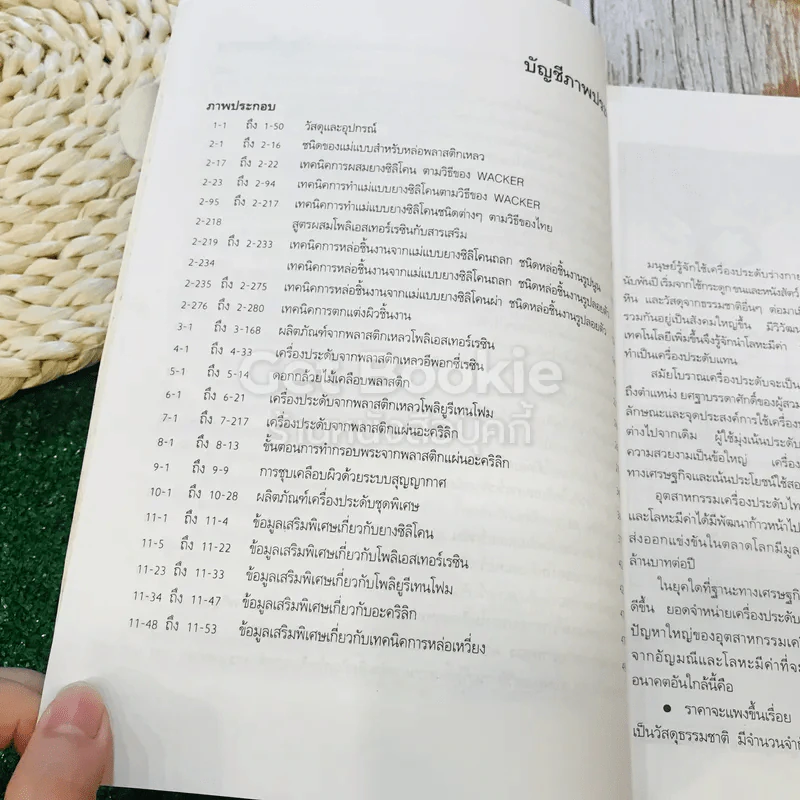 บัญชีภาพประ
ภาพประกอบ
1-1 ถึง 1-50 วัสดุและอุปกรณ์
2-1 ถึง 2-16 ชนิดของแม่แบบสำหรับหล่อพลาสติกเหลว
2-17 ถึง 2-22 เทคนิคการผสมยางซิลิโคน ตามวิธีของ WACKER
2-23 ถึง 2-94 เทคนิคการทำแม่แบบยางซิลิโคนตามวิธีของ WACKER
2-95 ถึง 2-217 เทคนิคการทำแม่แบบยางซิลิโคนชนิดต่างๆ ตามวิธีของไทย
2-218 สูตรผสมโพลิเอสเทอร์เรซินกับสารเสริม
2-219 ถึง 2-233 เทคนิคการหล่อชิ้นงานจากแม่แบบยางซิลิโคนถลก ชนิดหล่อชิ้นงานรูปนูน
2-234 เทคนิคการหล่อชิ้นงานจากแม่แบบยางซิลิโคนถลก ชนิดหล่อชิ้นงานรูปลอยตัว
2-235 ถึง 2-275 เทคนิคการหล่อชิ้นงานจากแม่แบบยางซิลิโคนผ่า ชนิดหล่อชิ้นงานรูปลอยตัว
2-276 ถึง 2-280 เทคนิคการตกแต่งผิวชิ้นงาน
3-1 ถึง 3-168 ผลิตภัณฑ์จากพลาสติกเหลวโพลิเอสเทอร์เรซิน
4-1 ถึง 4-33 เครื่องประดับจากพลาสติกเหลวอีพอกซี่เรซิน
5-1 ถึง 5-14 ดอกกล้วยไม้เคลือบพลาสติก
6-1 ถึง 6-21 เครื่องประดับจากพลาสติกเหลวโพลิยูรีเทนโฟม
7-1 ถึง 7-217 เครื่องประดับจากพลาสติกแผ่นอะคริลิก
8-1 ถึง 8-13 ขั้นตอนการทำกรอบพระจากพลาสติกแผ่นอะคริลิก
9-1 ถึง 9-9 การชุบเคลือบผิวด้วยระบบสุญญากาศ
10-1 ถึง 10-28 ผลิตภัณฑ์เครื่องประดับชุดพิเศษ
11-1 ถึง 11-4 ข้อมูลเสริมพิเศษเกี่ยวกับยางซิลิโคน
11-5 ถึง 11-22 ข้อมูลเสริมพิเศษเกี่ยวกับโพลิเอสเทอร์เรซิน
11-23 ถึง 11-33 ข้อมูลเสริมพิเศษเกี่ยวกับโพลิยูรีเทนโฟม
11-34 ถึง 11-47 ข้อมูลเสริมพิเศษเกี่ยวกับอะคริลิก
11-48 ถึง 11-53 ข้อมูลเสริมพิเศษเกี่ยวกับเทคนิคการหล่อเหวี่ยง
Get Bookie
ร้านหนังสือบุคกี้
มนุษย์รู้จักใช้เครื่องประดับร่างกา
นับพันปี เริ่มจากใช้กระดูก ขนและหนังสัตว์
หิน และวัสดุจากธรรมชาติอื่นๆ ต่อมาเมื
รวมกันอยู่เป็นสังคมใหญ่ขึ้น มีวิวัฒน
เทคโนโลยีเพิ่มขึ้นจึงรู้จักนำโลหะมีค่า
ทำเป็นเครื่องประดับแทน
สมัยโบราณเครื่องประดับจะเป็น
ถึงตำแหน่ง ยศฐาบรรดาศักดิ์ของผู้สวม
ลักษณะและจุดประสงค์การใช้เครื่อง
ต่างไปจากเดิม ผู้ใช้มุ่งเน้นประดับ
ความสวยงามเป็นข้อใหญ่ เครื่อง
ทางเศรษฐกิจและเน้นประโยชน์ใช้สอ
อุตสาหกรรมเครื่องประดับไท
และโลหะมีค่าได้มีพัฒนาก้าวหน้าไป
ส่งออกแข่งขันในตลาดโลกมีมูล
ล้านบาทต่อปี
ในยุคใดที่ฐานะทางเศรษฐกิ
ดีขึ้น ยอดจำหน่ายเครื่องประดับ
ปัญหาใหญ่ของอุตสาหกรรมเครื่
จากอัญมณีและโลหะมีค่าที่จะ
อนาคตอันใกล้นี้คือ
● ราคาจะแพงขึ้นเรื่อย
เป็นวัสดุธรรมชาติ มีจำนวนจำ